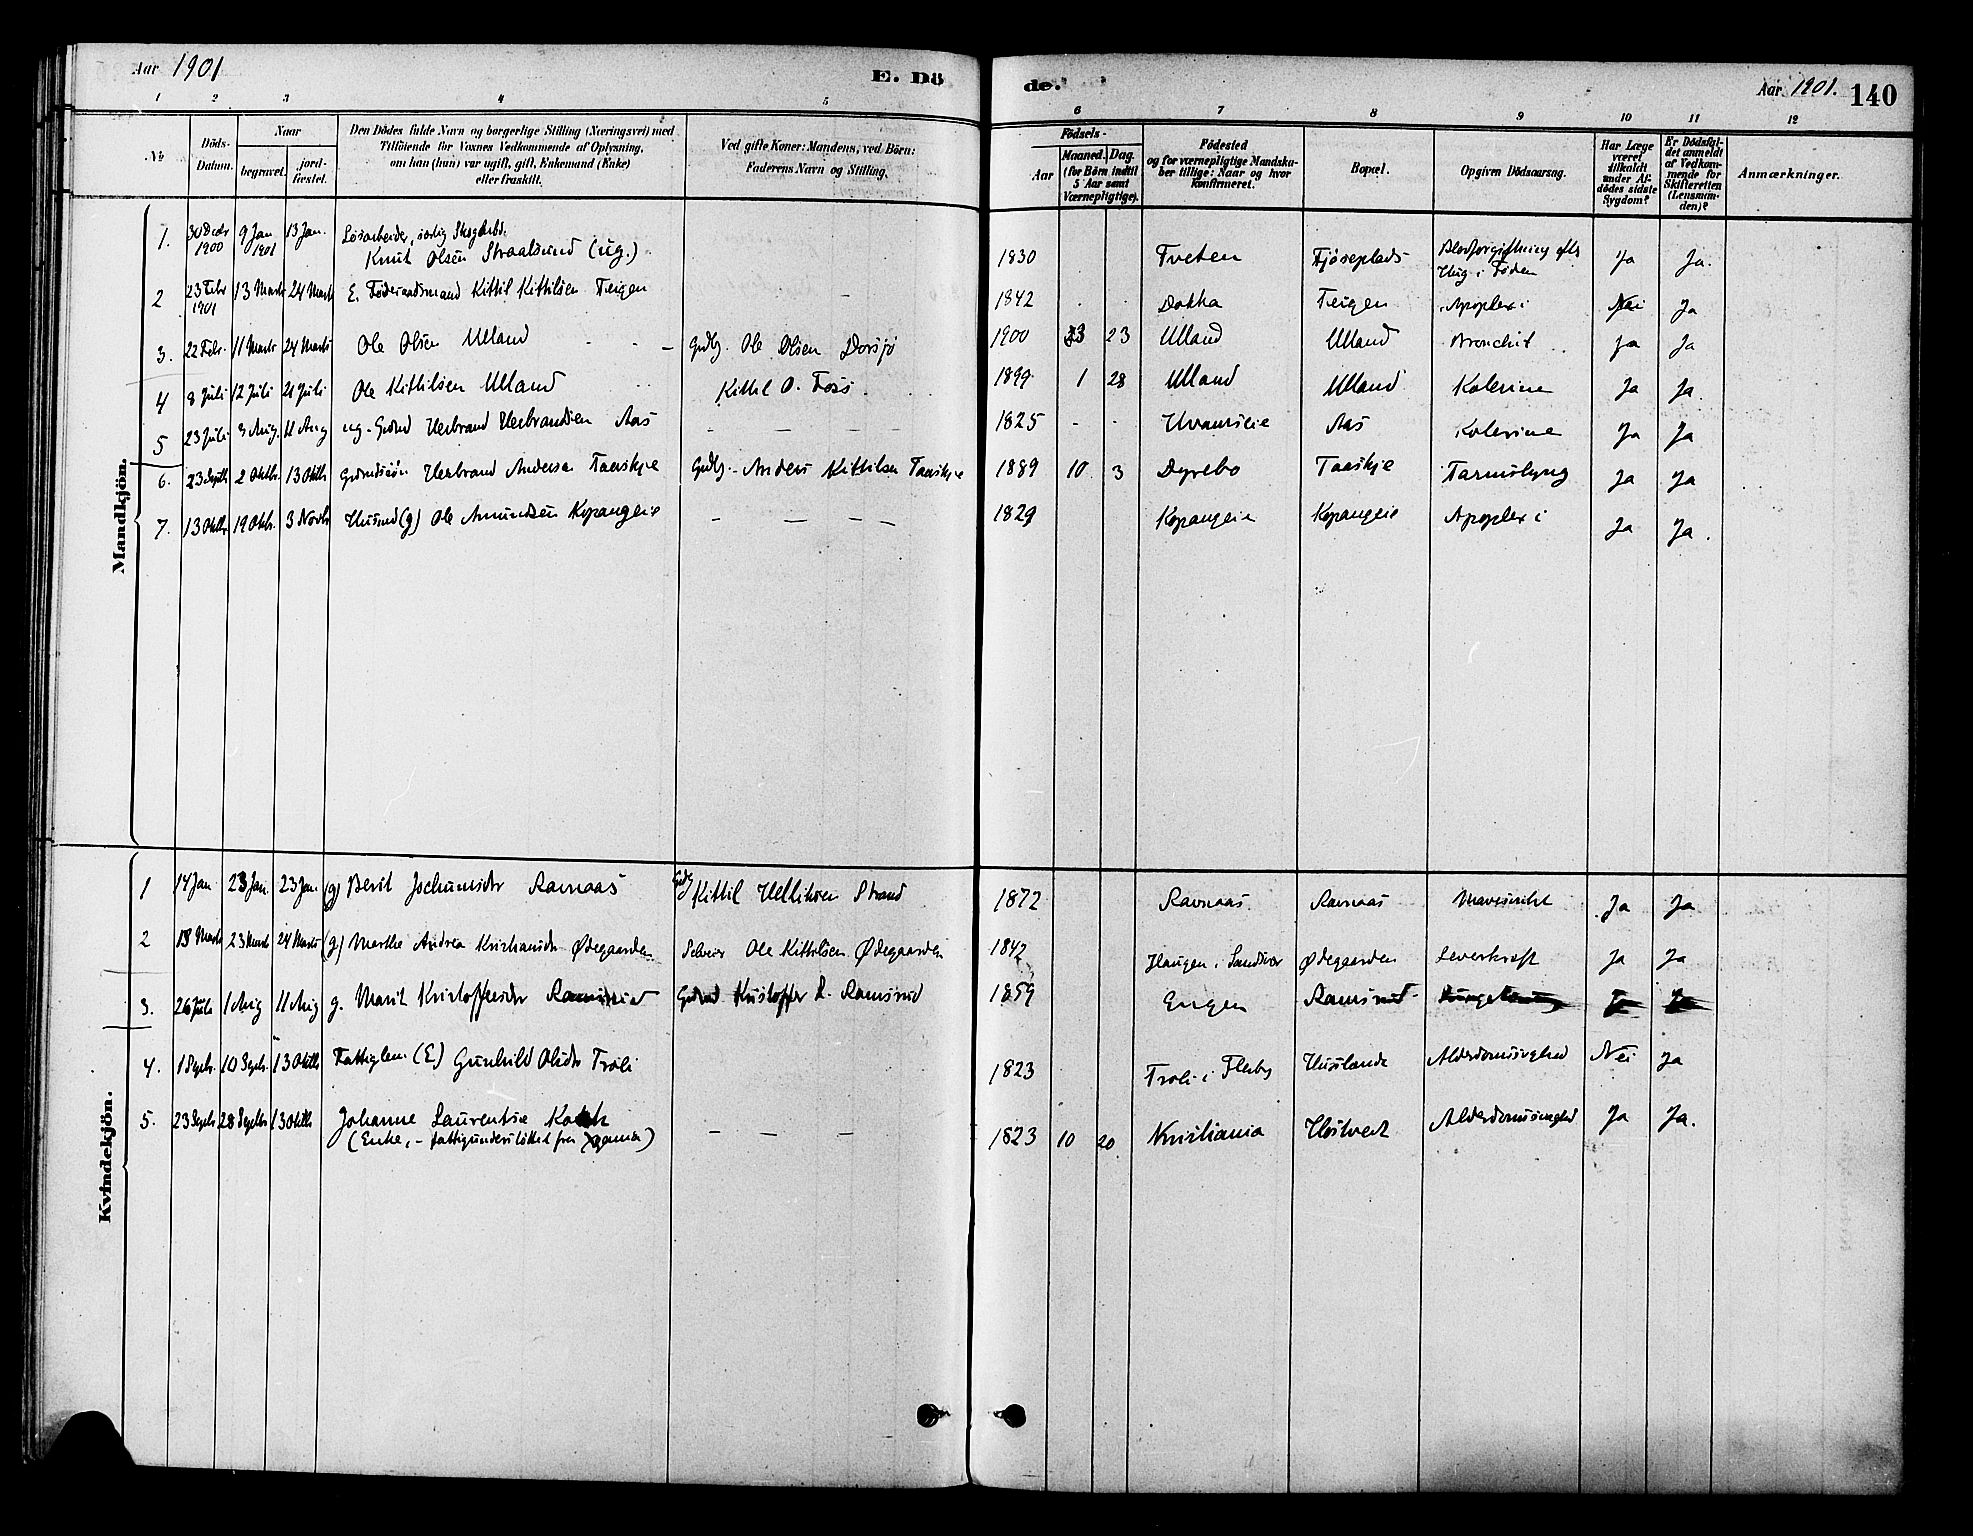 Aar 1901
E. Dö
de.
Aar 1901. 140
1 2 3 4 5 6 7 8 9 10 11 12
No.
Döds-Datum.
Naar
begravet.
jord-fæstet.
Den Dödes fulde Navn og borgerlige Stilling (Næringsvei) med
Tilföiende for Voxnes Vedkommende af Oplysning,
om han (hun) var ugift, gift, Enkemand (Enke)
eller fraskilt.
Ved gifte Koner: Mandens, ved Börn:
Faderens Navn og Stilling.
Födsels-
Aar
Maaned. Dag.
(for Börn indtil
5 Aar samt
Værnepligtige).
Födested
og for værnepligtige Mandska-
ber tillige: Naar og hvor
konfirmeret.
Bopæl.
Opgiven Dödsaarsag.
Har Læge
været
tilkaldt
under Af-
dödes sidste
Sygdom?
Er Dödsfal-
det anmeldt
af Vedkom-
mende for
Skifteretten
(Lensman-
den)?
Anmærkninger.
Mandkjön.
1. 30 Decbr 1900 9 Jan 1901 13 Jan. Løsarbeider, særlig Skogarb.
Knut Olsen Straalsund (ug.) 1830 Tveten Fjøseplads Blodforgiftning efter Hug i Foden Ja Ja.
2 23 Febr 1901 13 Marts 24 Marts E. Føderaadsmand Kittil Kittilsen Teigen 1842 Dokka Teigen Apoplexi Nei Ja
3. 22 Febr. 11 Marts 24 Marts Ole Olsen Ulland - - - Grdbr. Ole Olsen Dorsjø 1900 3 23 Ulland Ulland Bronchit Ja Ja
4 8 Juli 12 Juli 21 Juli Ole Kittilsen Ulland Kittil O. Foss 1899 1 28 Ulland Ulland Kolerine Ja Ja.
5 23 Juli 3 Aug. 11 Aug ug. Grdmd Herbrand Herbrandsen Aas - - - - 1825 - - Hvamseie Aas Kolerine Ja Ja
6. 23 Septb 2 Oktbr. 13 Oktb Grdmdssøn Herbrand Andersen Taaskje Grdbr. Anders Kittilsen Taaskje 1889 10 3 Dyrebo Taaskje Tarmslyng Ja Ja
7. 13 Oktbr 19 Oktb. 3 Novb Husmd (g) Ole Amundsen Kopangeie - - - - 1829 Kopangeie Kopangeie Apoplexi Ja Ja.
Kvindekjön.
1 14 Jan 23 Jan. 23 Jan (g) Berit Jochumsdr Ravnaas Grdbr Kittil Helliksen Strand 1872 Ravnaas Ravnaas Ja Ja
2 18 Marts 23 Marts 24 Marts (g) Marthe Andrea Kristiansdr Ødegaarden Selveier Ole Kittilsen Ødegaarden 1842 Haugen i Sandsvær Ødegaarden Leverkræft Ja Ja
3. 26 Juli 1 Aug 11 Aug g. Marit Kristoffersdr Ramsrud Grdmd Kristoffer R. Ramsrud 1859 Engen Ramsrud
4. 1 Septb. 10 Septb. 13 Oktb Fattiglem (E) Gunhild Olsdr Troli 1823 Troli i Flesberg Alderdomssvaghed Nei Ja
5. 23 Septb 28 Septbr 13 Oktb Johanne Laurentse
(Enke, - fattigunderstøttet fra ) - - - 1823 10 20 Kristiania Høstvedt Alderdomssvaghed Ja Ja.